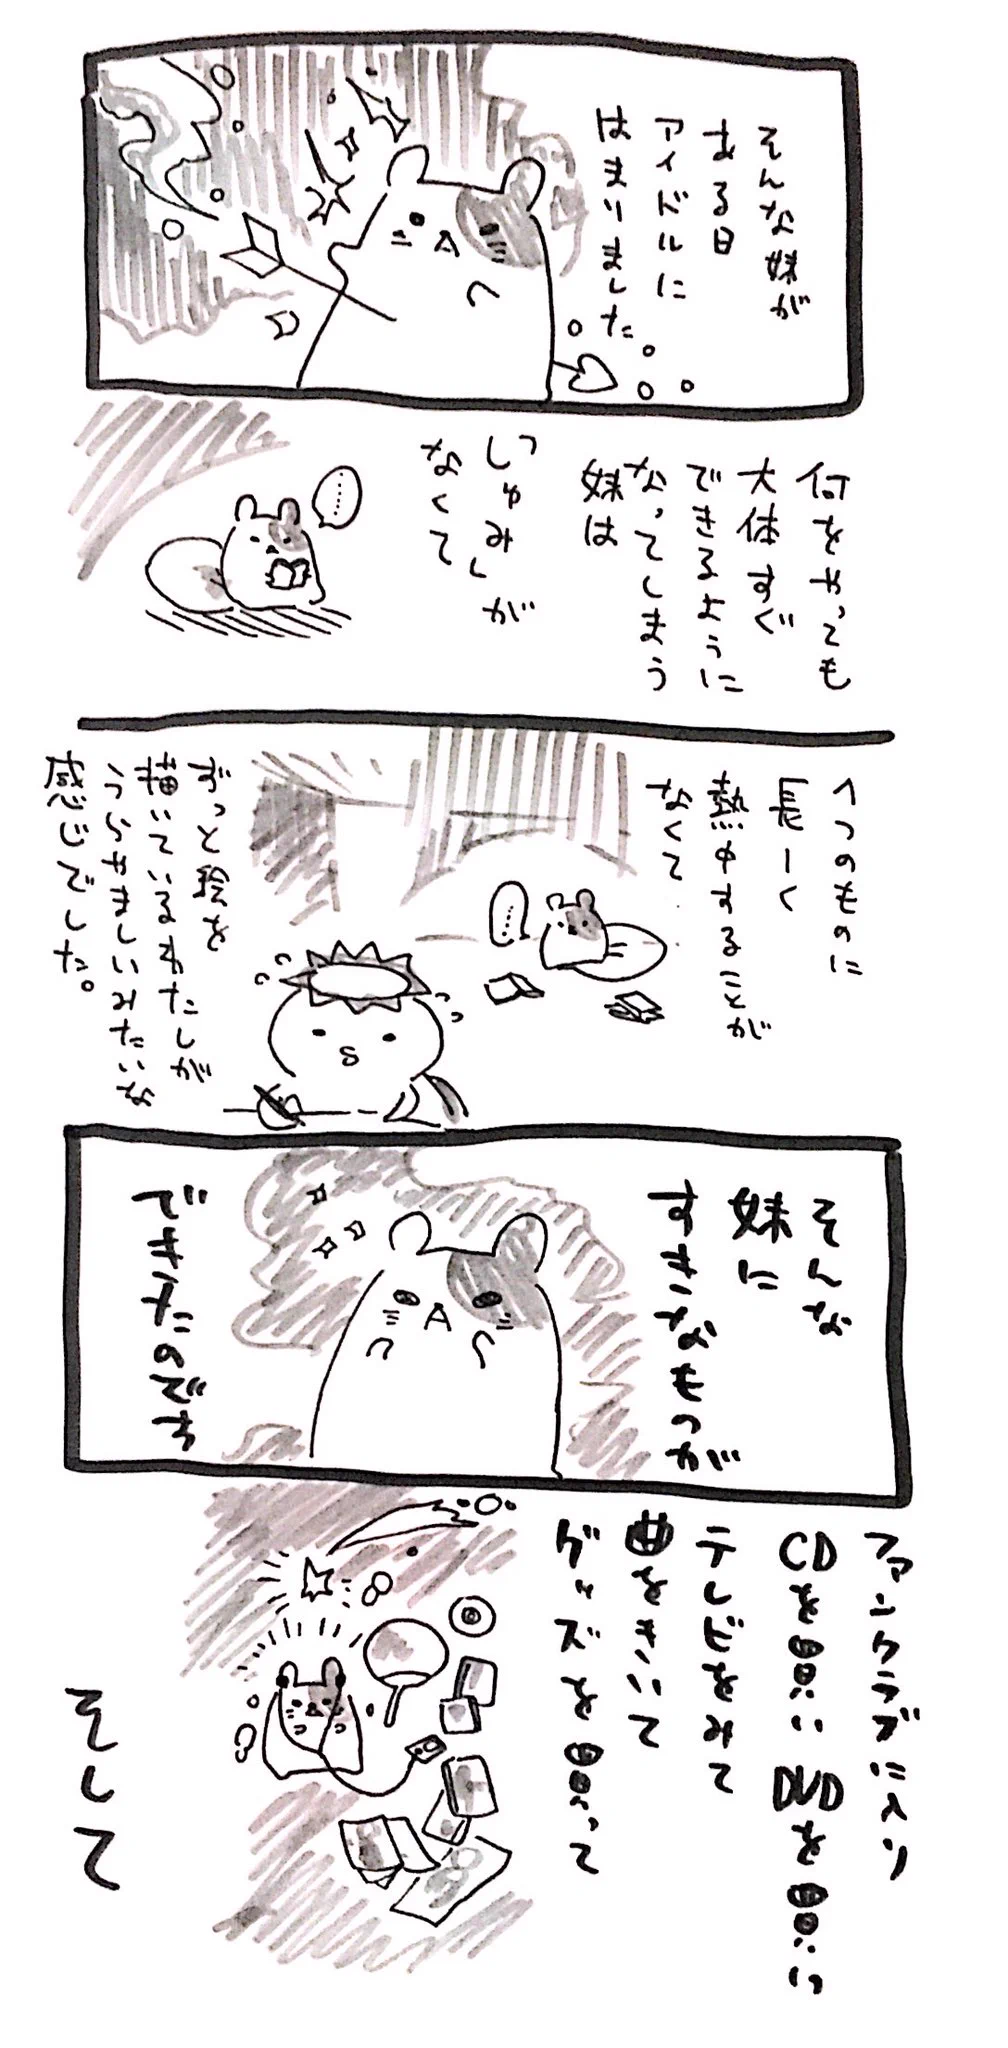 そんな妹が
ある日
アイドルに
はまりました
何をやっても
大体すぐ
できるように
なってしまう
妹は
「しゅみ」が
なくて
1つのものに
長ーく
熱中することが
なくて
ずっと絵を
描いているわたしが
うらやましいみたいな
感じでした。
そんな
妹に
すきなものが
できたのです
ファンクラブに入り
CDを買い DVDを買い
テレビをみて
曲をきいて
グッズを買って
そして